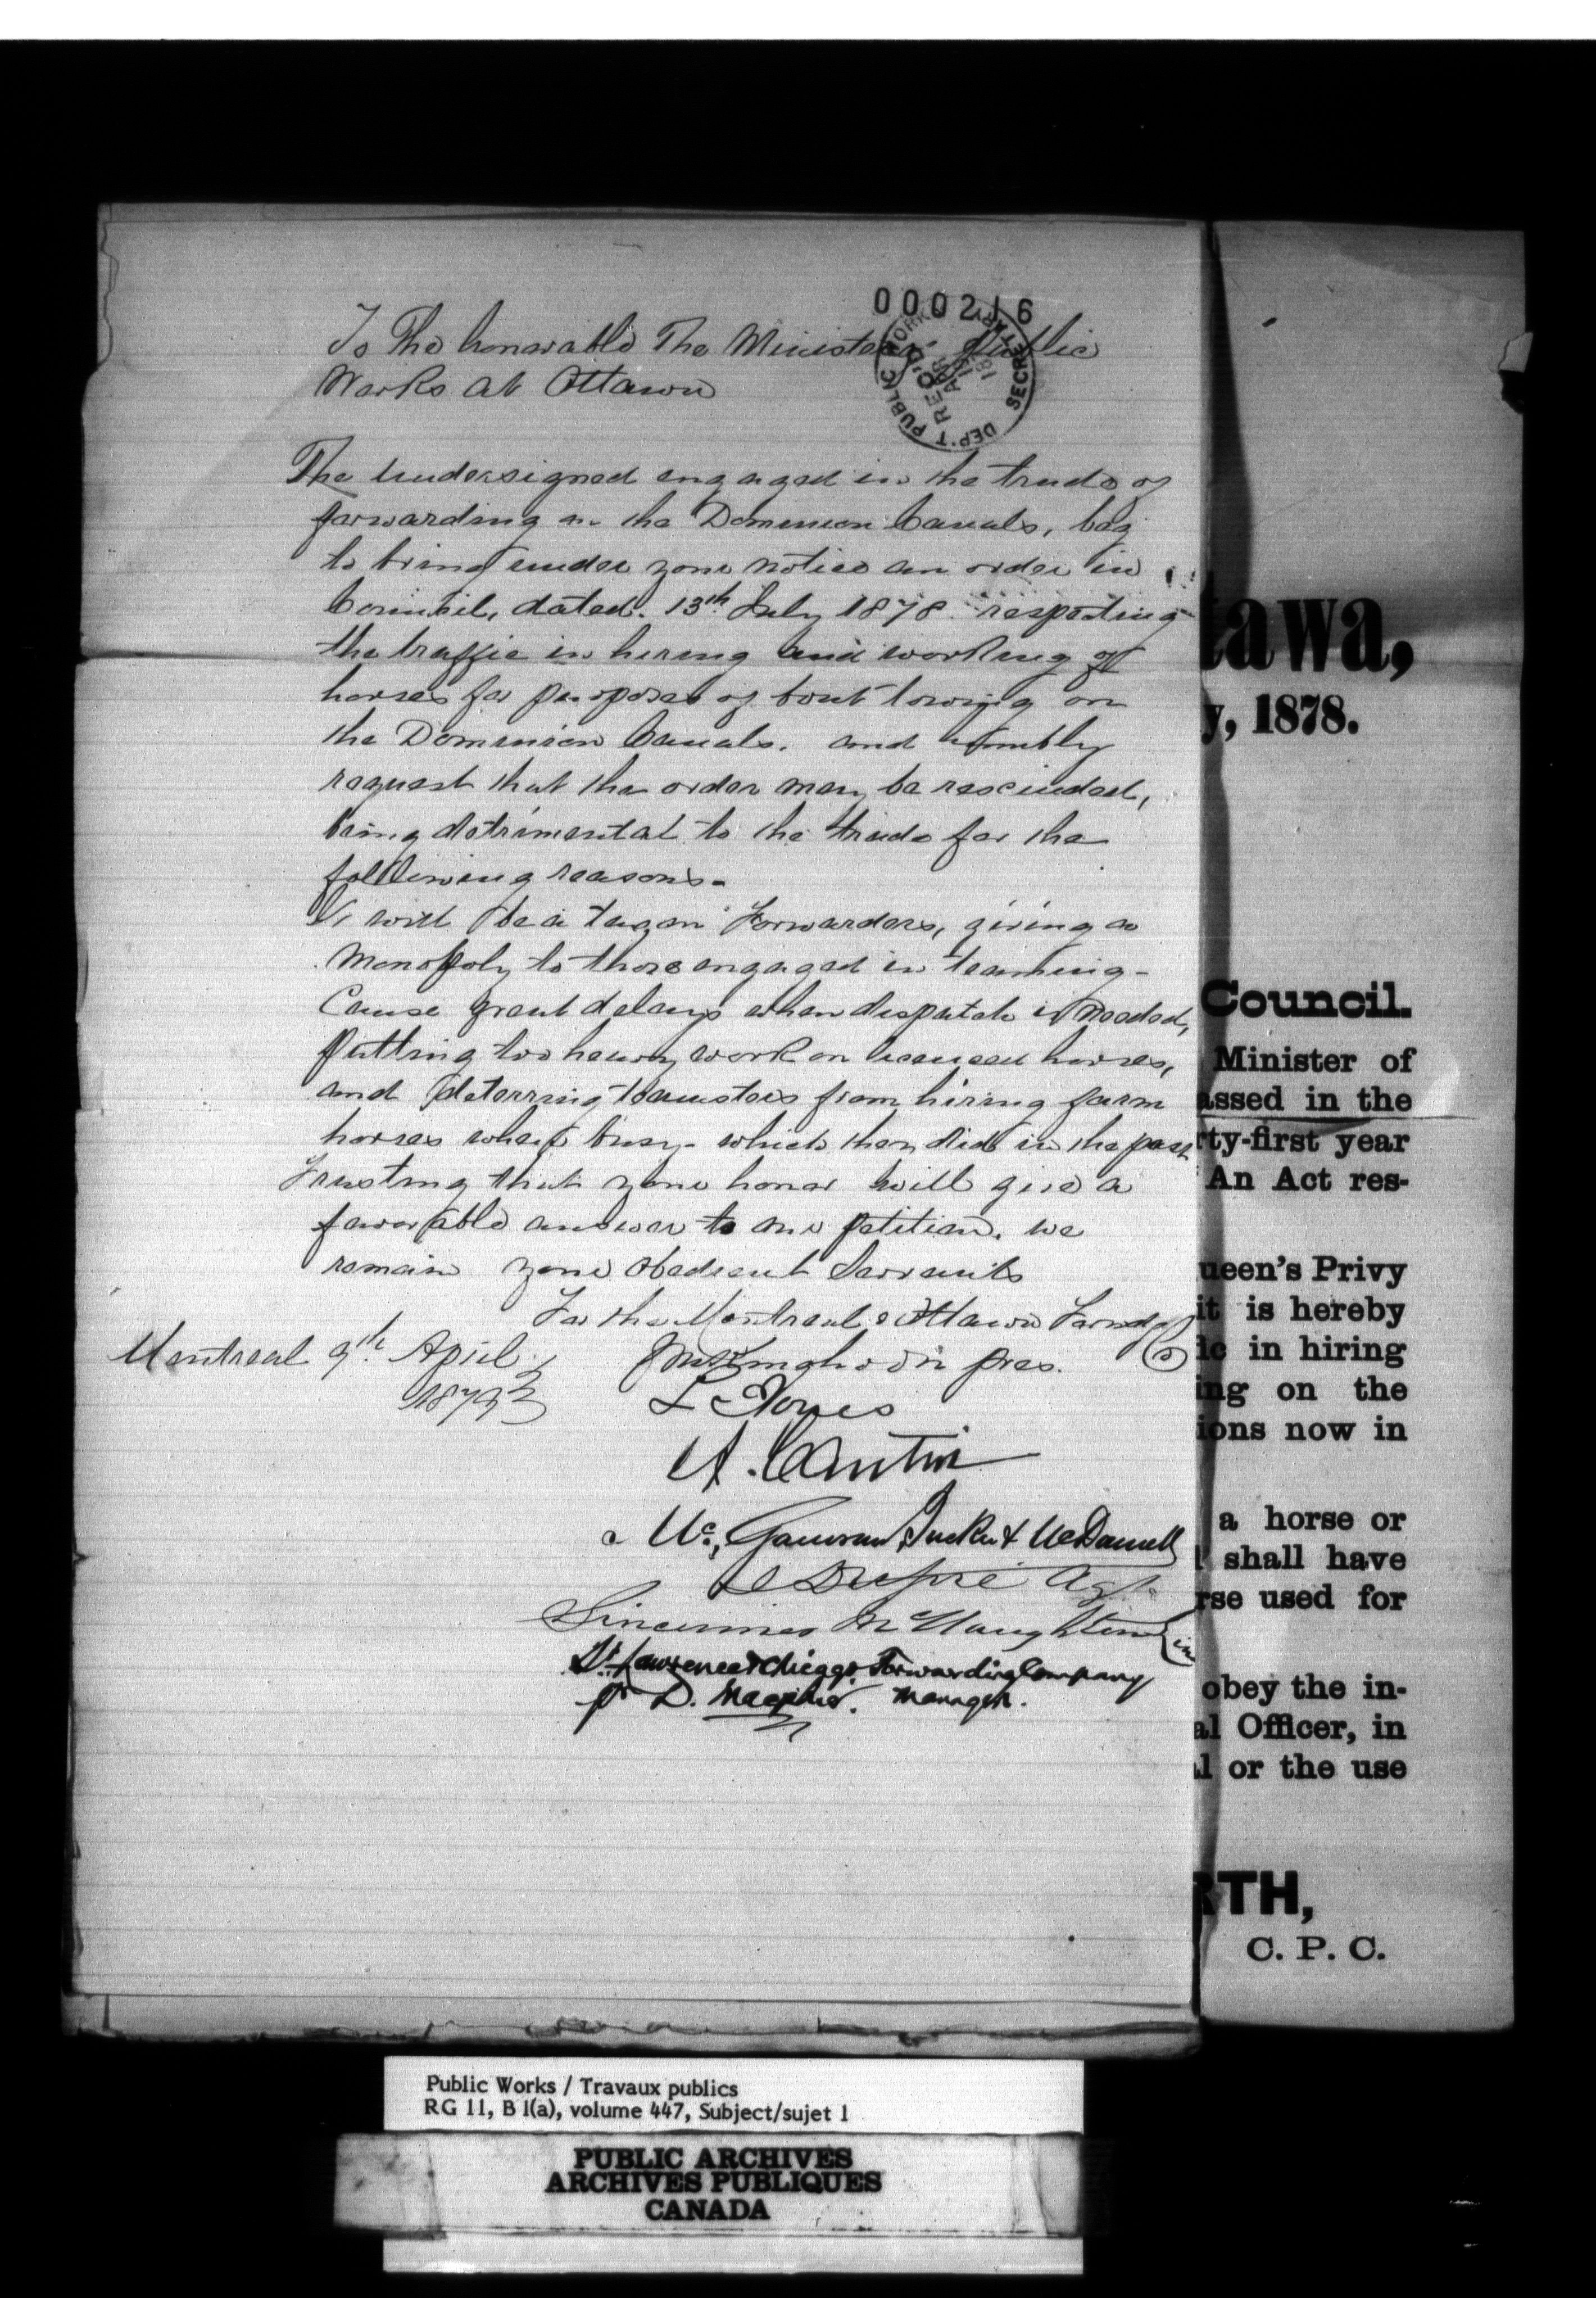 000216
DEP'T PUBLIC WORKS SECRETARY
REC'D.
APR
To The honorable The Minister Public
Works at Ottawa
The Undersigned engaged in the trade of
forwarding on the Dominion Canals, beg
to bring under your notice an order in
Council, dated. 13th July 1878 respecting
the traffic in hireing and working of
horses for purposes of boat towing on
the Dominion Canals. and humbly
request that the order may be rescinded,
being detrimental to the trade for the
following reasons-
It will be a tax on Forwarders, giving a
Monopoly to those engaged in teaming-
Cause great delays when despatch is Needed,
putting too heavy work on licensed horses,
and deterring teamsters from hiring farm
horses when busy- which they did in the past
Trusting that your honor will give a
favorable answer to our petition. we
remain your Obedient Servants
For the Montreal & Ottawa Forwdg Co
Montreal 9th April
1879
pres.
A. Cantin
& McDonnell
L Dupré Agt
Sincennes McNaughton Line
St. Lawrence & Chicago Forwarding Company
pr D. Manager.
tawa,
y, 1878.
Council.
Minister of
assed in the
rty-first year
An Act res-
ueen's Privy
it is hereby
ic in hiring
ing on the
ions now in
a horse or
l shall have
rse used for
obey the in-
al Officer, in
al or the use
RTH,
C. P. C.
Public Works / Travaux publics
RG 11, B 1(a), volume 447, Subject/sujet 1
PUBLIC ARCHIVES
ARCHIVES PUBLIQUES
CANADA